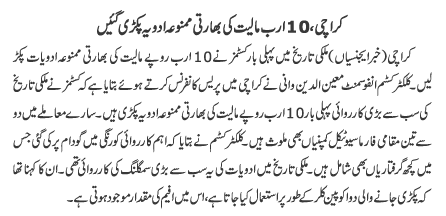 کراچی، 10 ارب مالیت کی بھارتی ممنوعہ ادویہ پکڑی گئیں
کراچی (خبر ایجنسیاں) ملکی تاریخ میں پہلی بار کسٹمز نے 10 ارب روپے مالیت کی بھارتی ممنوعہ ادویات پکڑ
لیں۔ کلکٹر کسٹم انفوسمنٹ معین الدین وانی نے کراچی میں پریس کانفرنس کرتے ہوئے بتایا ہے کہ کسٹمز نے ملکی تاریخ
کی سب سے بڑی کارروائی پہلی بار 10 ارب روپے مالیت کی بھارتی ممنوعہ ادویہ پکڑی ہیں۔ سارے معاملے میں دو
سے تین مقامی فارماسیوٹیکل کمپنیاں بھی ملوث ہیں۔ کلکٹر کسٹمز نے بتایا کہ اہم کارروائی کورنگی میں گودام پر کی گئی جس
میں کچھ گرفتاریاں بھی شامل ہیں۔ ملکی تاریخ میں ادویات کی یہ سب سے بڑی سمگلنگ کی کارروائی تھی۔ ان کا کہنا تھا
کہ پکڑی جانے والی دوا کو پین کلر کے طور پر استعمال کیا جاتا ہے، اس میں افیم کی مقدار موجود ہوتی ہے۔